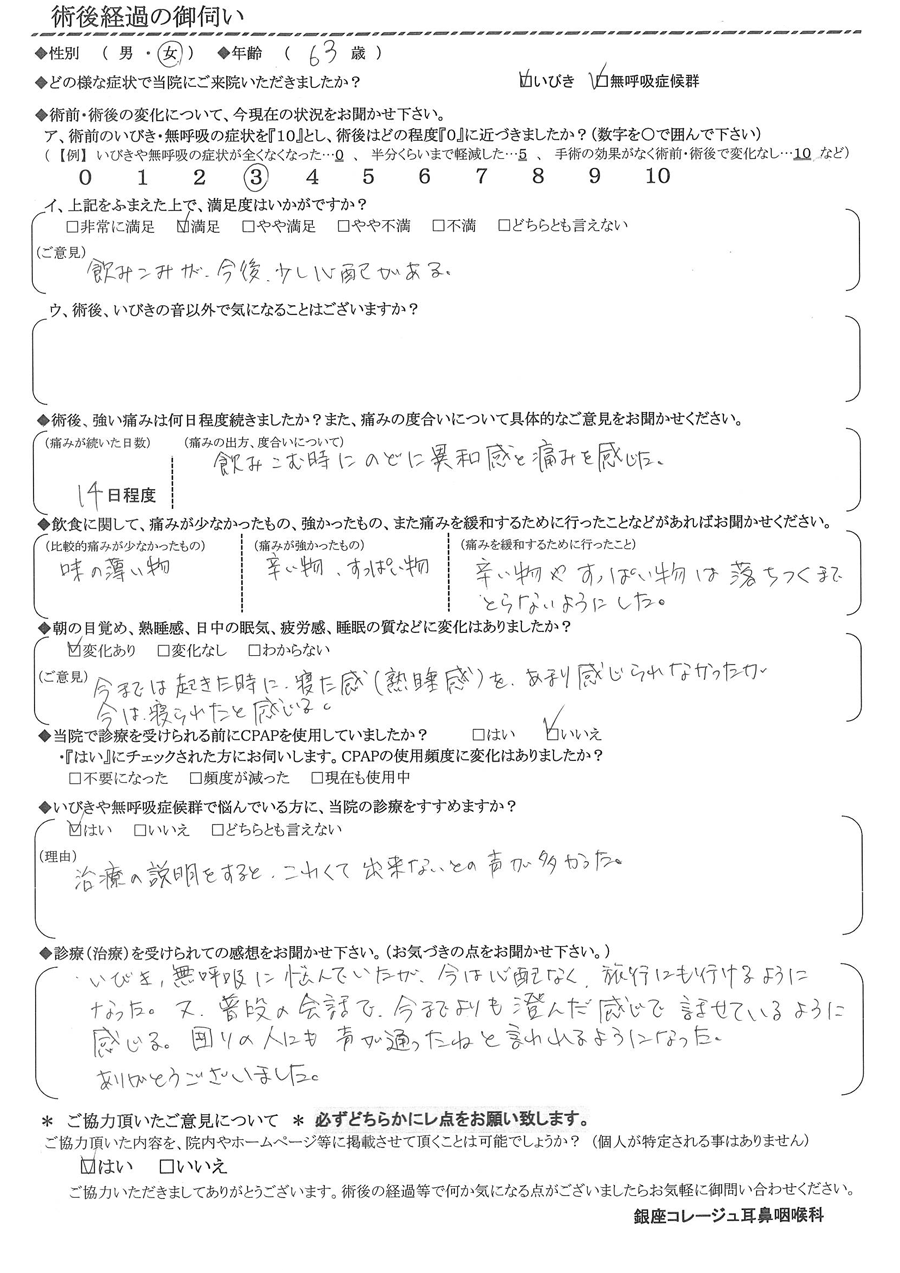 術後経過の御伺い
◆性別 ( 男 ・ 女 ) ◆年齢 ( 63 歳 )
◆どの様な症状で当院にご来院いただきましたか? ☑いびき ☑無呼吸症候群
◆術前・術後の変化について、今現在の状況をお聞かせ下さい。
ア、術前のいびき・無呼吸の症状を『10』とし、術後はどの程度『0』に近づきましたか?(数字を〇で囲んで下さい)
(【例】いびきや無呼吸の症状が全くなくなった…0 、 半分くらいまで軽減した…5 、 手術の効果がなく術前・術後で変化なし…10 など)
0 1 2 3 4 5 6 7 8 9 10
イ、上記をふまえた上で、満足度はいかがですか?
□非常に満足 ☑満足 □やや満足 □やや不満 □不満 □どちらとも言えない
(ご意見)
飲みこみが、今後、少し心配がある。
ウ、術後、いびきの音以外で気になることはございますか?
◆術後、強い痛みは何日程度続きましたか?また、痛みの度合いについて具体的なご意見をお聞かせください。
(痛みが続いた日数) (痛みの出方、度合いについて)
飲みこむ時にのどに異和感と痛みを感じた。
14日程度
◆飲食に関して、痛みが少なかったもの、強かったもの、また痛みを緩和するために行ったことなどがあればお聞かせください。
(比較的痛みが少なかったもの) (痛みが強かったもの) (痛みを緩和するために行ったこと)
味の薄い物 辛い物、すっぱい物 辛い物やすっぱい物は落ちつくまで
とらないようにした。
◆朝の目覚め、熟睡感、日中の眠気、疲労感、睡眠の質などに変化はありましたか?
☑変化あり □変化なし □わからない
(ご意見) 今までは起きた時に、寝た感(熟睡感)を、あまり感じられなかったが
今は、寝られたと感じる。
◆当院で診療を受けられる前にCPAPを使用していましたか? □はい ☑いいえ
・『はい』にチェックされた方にお伺いします。CPAPの使用頻度に変化はありましたか?
□不要になった □頻度が減った □現在も使用中
◆いびきや無呼吸症候群で悩んでいる方に、当院の診療をすすめますか?
☑はい □いいえ □どちらとも言えない
(理由)
治療の説明をすると、こわくて出来ないとの声が多かった。
◆診療(治療)を受けられての感想をお聞かせ下さい。(お気づきの点をお聞かせ下さい。)
いびき、無呼吸に悩んでいたが、今は心配なく、旅行にも行けるように
なった。又、普段の会話で、今までよりも澄んだ感じで話せているように
感じる。困りの人にも声が通ったねと言われるようになった。
ありがとうございました。
* ご協力頂いたご意見について * 必ずどちらかにレ点をお願い致します。
ご協力頂いた内容を、院内やホームページ等に掲載させて頂くことは可能でしょうか? (個人が特定される事はありません)
☑はい □いいえ
ご協力いただきましてありがとうございます。術後の経過等で何か気になる点がございましたらお気軽に御問い合わせください。
銀座コレージュ耳鼻咽喉科